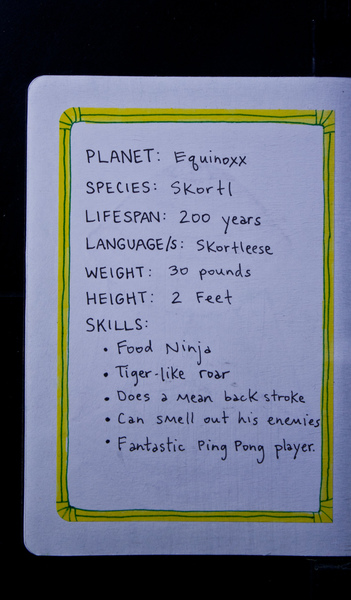 PLANET: Equinoxx
SPECIES: Skortl
LIFESPAN: 200 years
LANGUAGE/S: Skortleese
WEIGHT: 30 pounds
HEIGHT: 2 Feet
SKILLS:
• Food Ninja
• Tiger-like roar
• Does a mean back stroke
• Can smell out his enemies
• Fantastic Ping Pong player.